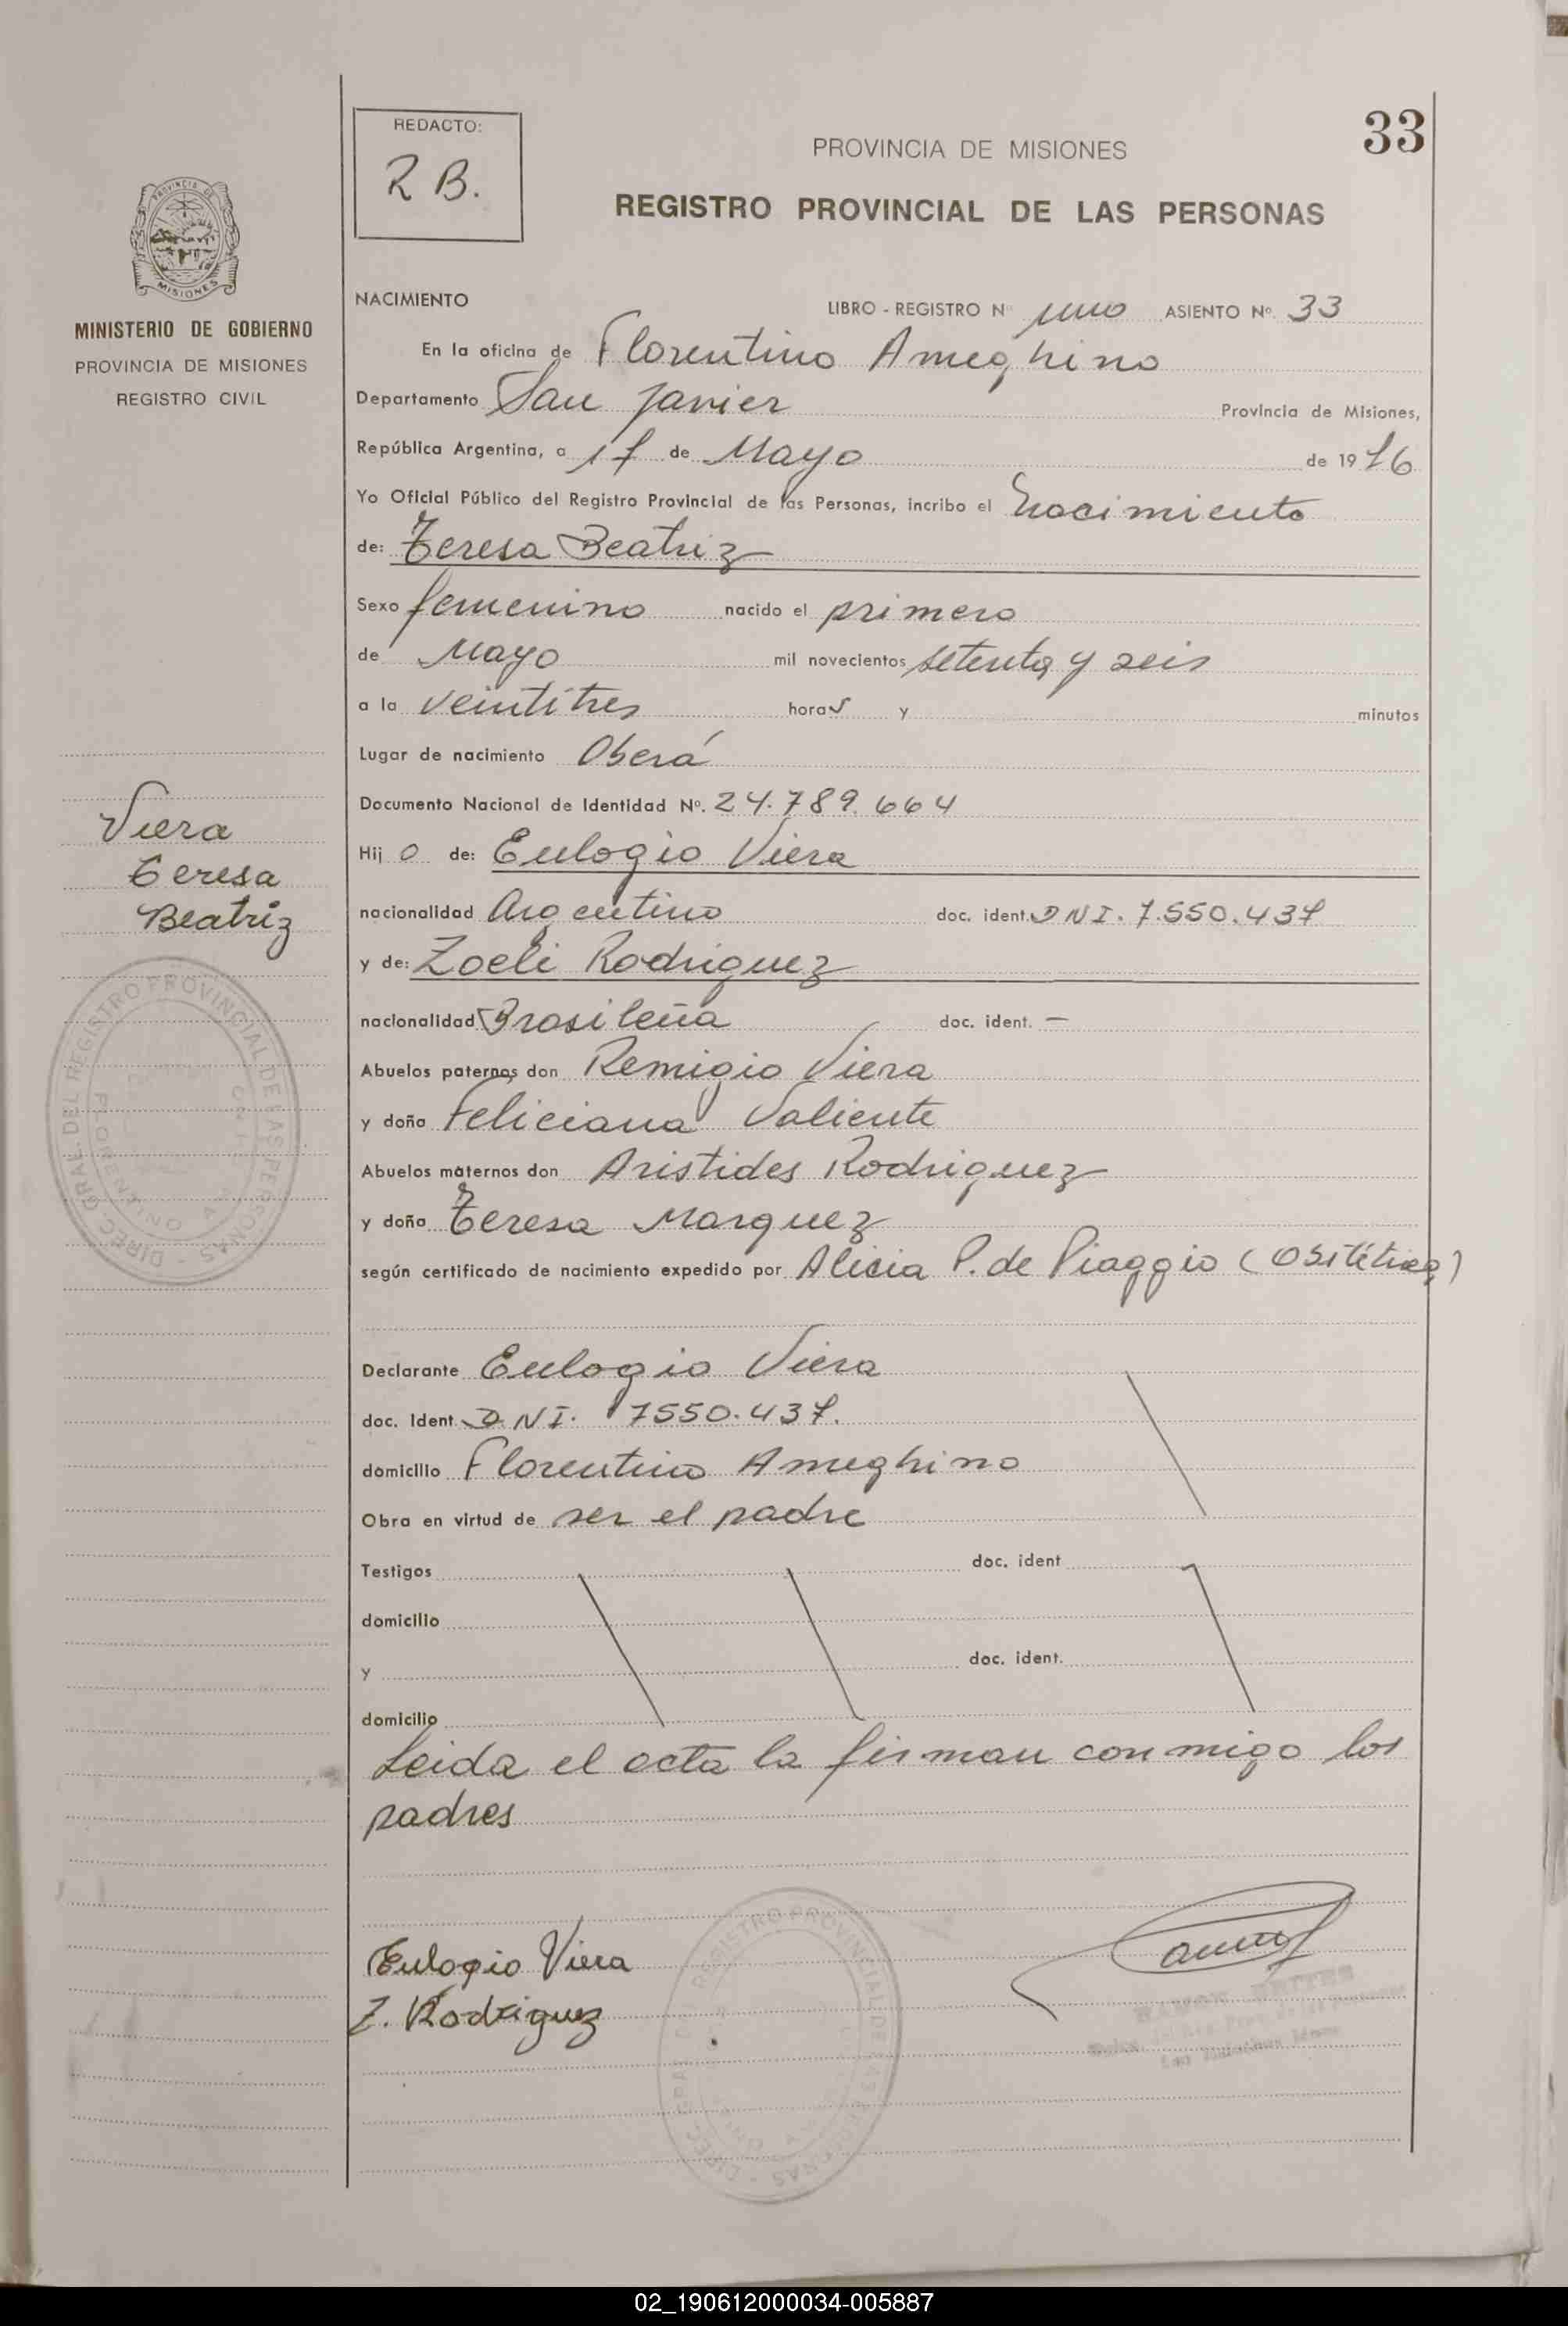 REDACTO:
R B.
33
PROVINCIA DE MISIONES
REGISTRO PROVINCIAL DE LAS PERSONAS
PROVINCIA DE
MISIONES
MINISTERIO DE GOBIERNO
PROVINCIA DE MISIONES
REGISTRO CIVIL
NACIMIENTO LIBRO - REGISTRO N° uno ASIENTO N°. 33
En la oficina de Florentino Ameghino
Departamento San Javier Provincia de Misiones,
República Argentina, a 17 de Mayo de 1976
Yo Oficial Público del Registro Provincial de las Personas, incribo el Nacimiento
de: Teresa Beatriz
Sexo femenino nacido el primero
de Mayo mil novecientos setenta y seis
a la veintitres horas y minutos
Lugar de nacimiento Oberá
Documento Nacional de Identidad N°. 24.789.664
Hijo de: Eulogio Viera
nacionalidad Argentino doc. ident. DNI. 7.550.437
y de: Zoeli Rodriguez
nacionalidad Brasileña doc. ident. —
Abuelos paternos don Remigio Viera
y doña Feliciana Valiente
Abuelos maternos don Aristides Rodriguez
y doña Teresa Marquez
según certificado de nacimiento expedido por Alicia P. de Piaggio (Obstétrica)
Declarante Eulogio Viera
doc. Ident. DNI. 7550.437.
domicilio Florentino Ameghino
Obra en virtud de ser el padre
Testigos doc. ident
domicilio
y doc. ident.
domicilio
Leida el acta la firman conmigo los
padres
Eulogio Viera
Z. Rodriguez
Viera
Teresa
Beatriz
DIREC. GRAL. DEL REGISTRO PROVINCIAL DE LAS PERSONAS
FLORENTINO
DIREC. GRAL. DEL REGISTRO PROVINCIAL DE LAS PERSONAS
02_190612000034-005887